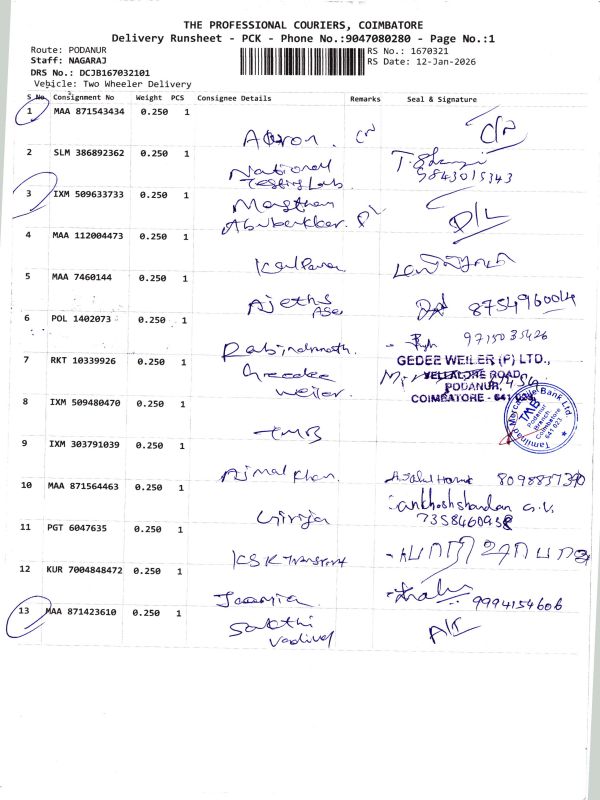 THE PROFESSIONAL COURIERS, COIMBATORE
Delivery Runsheet - PCK - Phone No.:9047080280 - Page No.:1
Route: PODANUR
RS No.: 1670321
Staff: NAGARAJ
RS Date: 12-Jan-2026
DRS No.: DCJB167032101
Vehicle: Two Wheeler Delivery
S No Consignment No Weight PCS Consignee Details Remarks Seal & Signature
1 MAA 871543434 0.250 1
2 SLM 386892362 0.250 1 National Testing Lab. 9843015343
3 IXM 509633733 0.250 1 Masthan Abubakkar. D/L D/L
4 MAA 112004473 0.250 1 Kalpana
5 MAA 7460144 0.250 1 Ajeths 8754960014
6 POL 1402073 0.250 1 Rabindranath. 9715035426
7 RKT 10339926 0.250 1 Greedee weiler. GEDEE WEILER (P) LTD.,
VELLALORE ROAD,
PODANUR,
COIMBATORE - 641
8 IXM 509480470 0.250 1 TMB Tamilnad Mercantile Bank Ltd. TMB Podanur Branch Coimbatore 641 023
9 IXM 303791039 0.250 1 Ajmal Khan.
10 MAA 871564463 0.250 1 Girija 7358460958
11 PGT 6047635 0.250 1 KSK Transport
12 KUR 7004848472 0.250 1 9994154606
13 MAA 871423610 0.250 1 Sakthi Vadivel